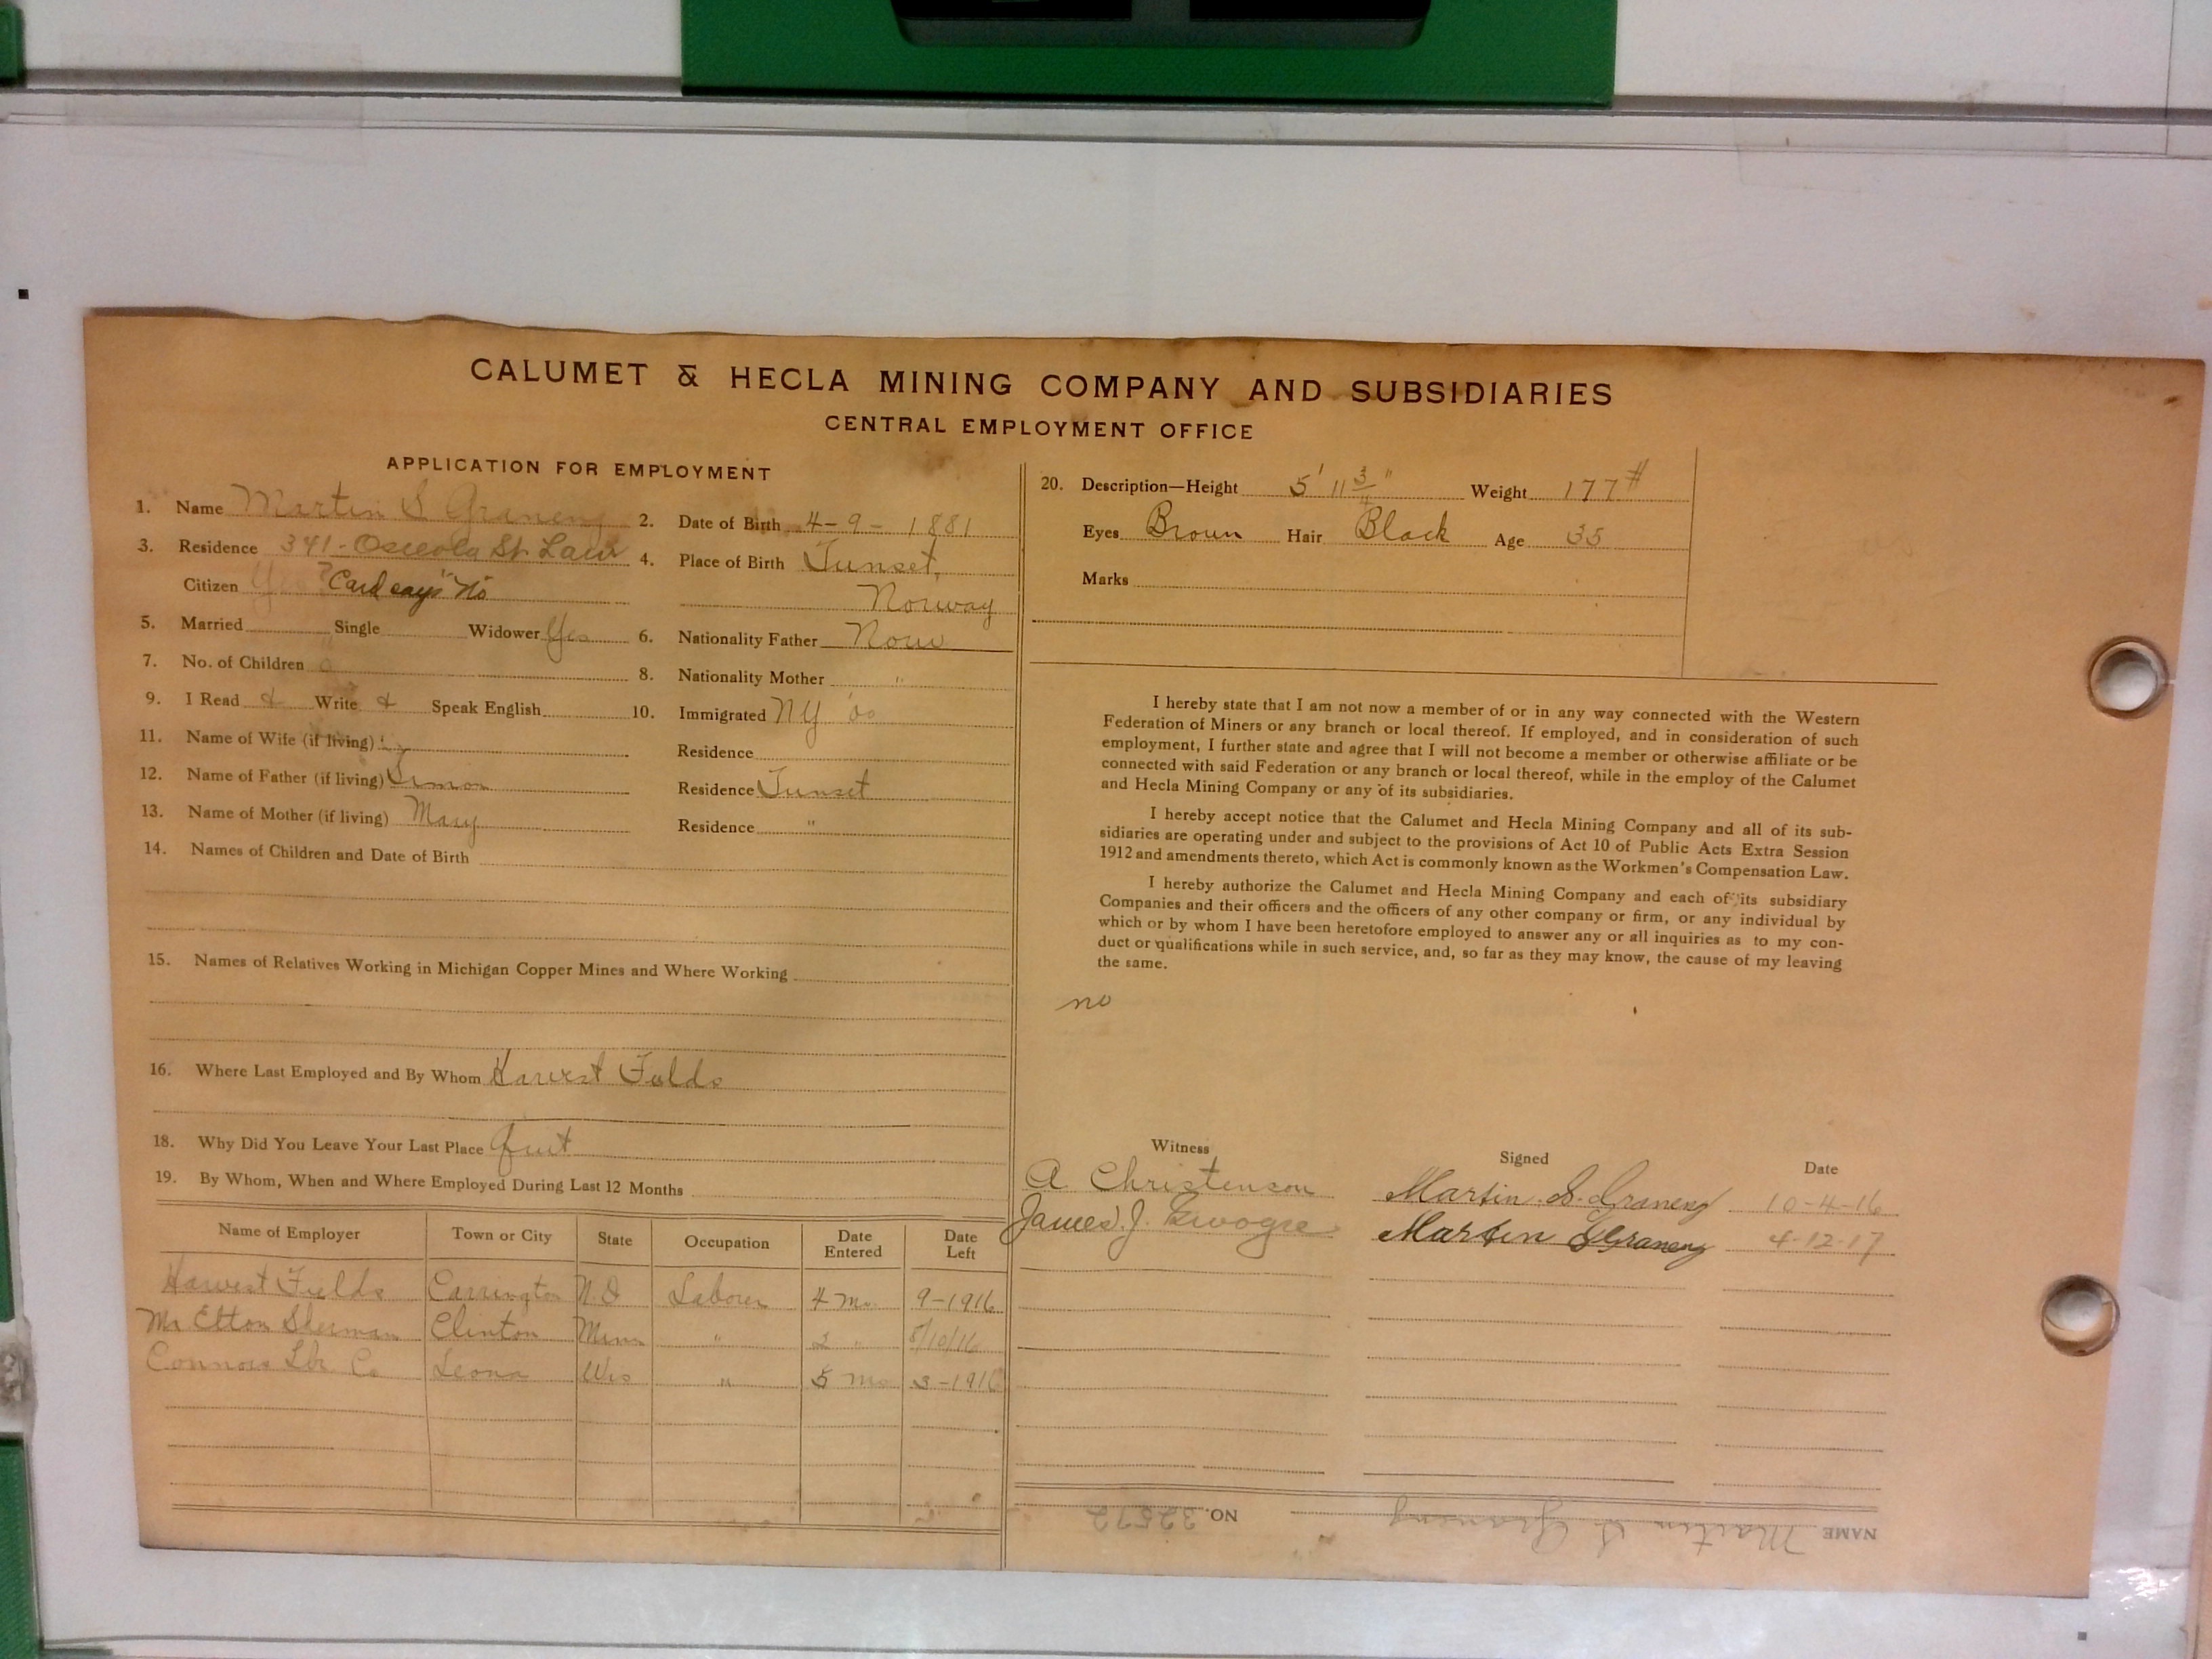 CALUMET & HECLA MINING COMPANY AND SUBSIDIARIES
CENTRAL EMPLOYMENT OFFICE
APPLICATION FOR EMPLOYMENT
1. Name Martin S Graneng 2. Date of Birth 4-9-1881
3. Residence 341-Osceola St. Laur 4. Place of Birth Tunset,
Citizen Yes ? Card says "No" Norway
5. Married Single Widower Yes 6. Nationality Father Norw
7. No. of Children 0 8. Nationality Mother "
9. I Read & Write & Speak English 10. Immigrated NY '00
11. Name of Wife (if living) Residence
12. Name of Father (if living) Simon Residence Tunset
13. Name of Mother (if living) Mary Residence "
14. Names of Children and Date of Birth
15. Names of Relatives Working in Michigan Copper Mines and Where Working
16. Where Last Employed and By Whom Harvest Fields
18. Why Did You Leave Your Last Place Quit
19. By Whom, When and Where Employed During Last 12 Months
Name of Employer Town or City State Occupation Date Entered Date Left
Harvest Fields Carrington N.D Laborer 4 mo. 9-1916
Mr Elton Sherman Clinton Minn " 2 " 5/10/16
Connors Lbr Co Leona Wis " 5 mo 3-1916
20. Description—Height 5' 11 3/4" Weight 177#
Eyes Brown Hair Black Age 35
Marks
I hereby state that I am not now a member of or in any way connected with the Western
Federation of Miners or any branch or local thereof. If employed, and in consideration of such
employment, I further state and agree that I will not become a member or otherwise affiliate or be
connected with said Federation or any branch or local thereof, while in the employ of the Calumet
and Hecla Mining Company or any of its subsidiaries.
I hereby accept notice that the Calumet and Hecla Mining Company and all of its sub-
sidiaries are operating under and subject to the provisions of Act 10 of Public Acts Extra Session
1912 and amendments thereto, which Act is commonly known as the Workmen's Compensation Law.
I hereby authorize the Calumet and Hecla Mining Company and each of its subsidiary
Companies and their officers and the officers of any other company or firm, or any individual by
which or by whom I have been heretofore employed to answer any or all inquiries as to my con-
duct or qualifications while in such service, and, so far as they may know, the cause of my leaving
the same.
no
Witness Signed Date
A Christenson Martin S. Graneng 10-4-16
James J. Martin S Graneng 4-12-17
NAME Martin S Graneng NO. 32572